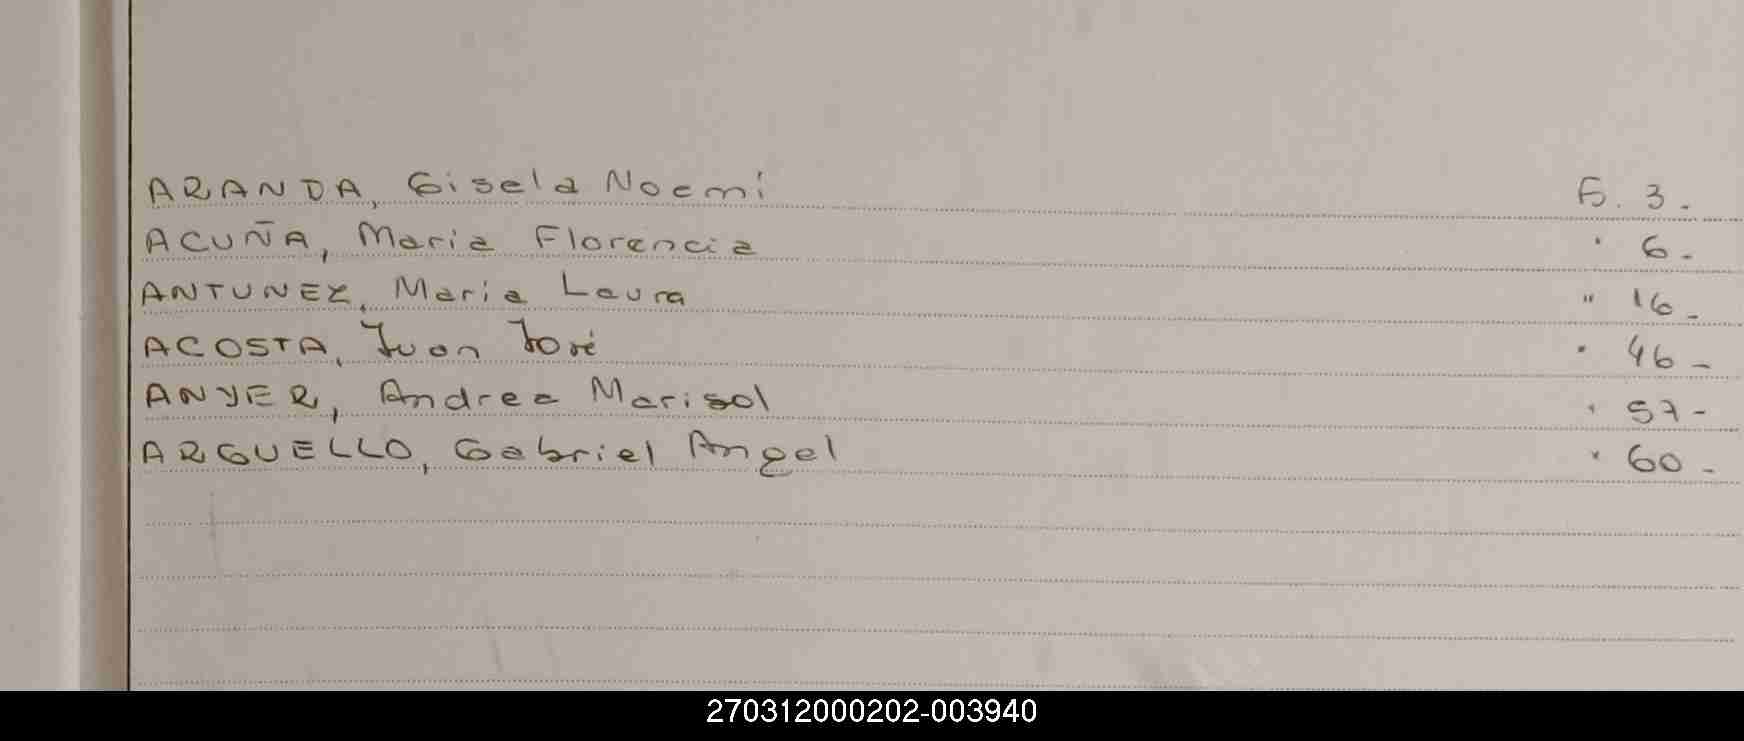 ARANDA, Gisela Noemí F. 3.
ACUÑA, Maria Florencia " 6-
ANTUNEZ, Maria Laura " 16-
ACOSTA, Juan José " 46-
ANYER, Andrea Marisol " 57-
ARGUELLO, Gabriel Angel " 60-
270312000202-003940